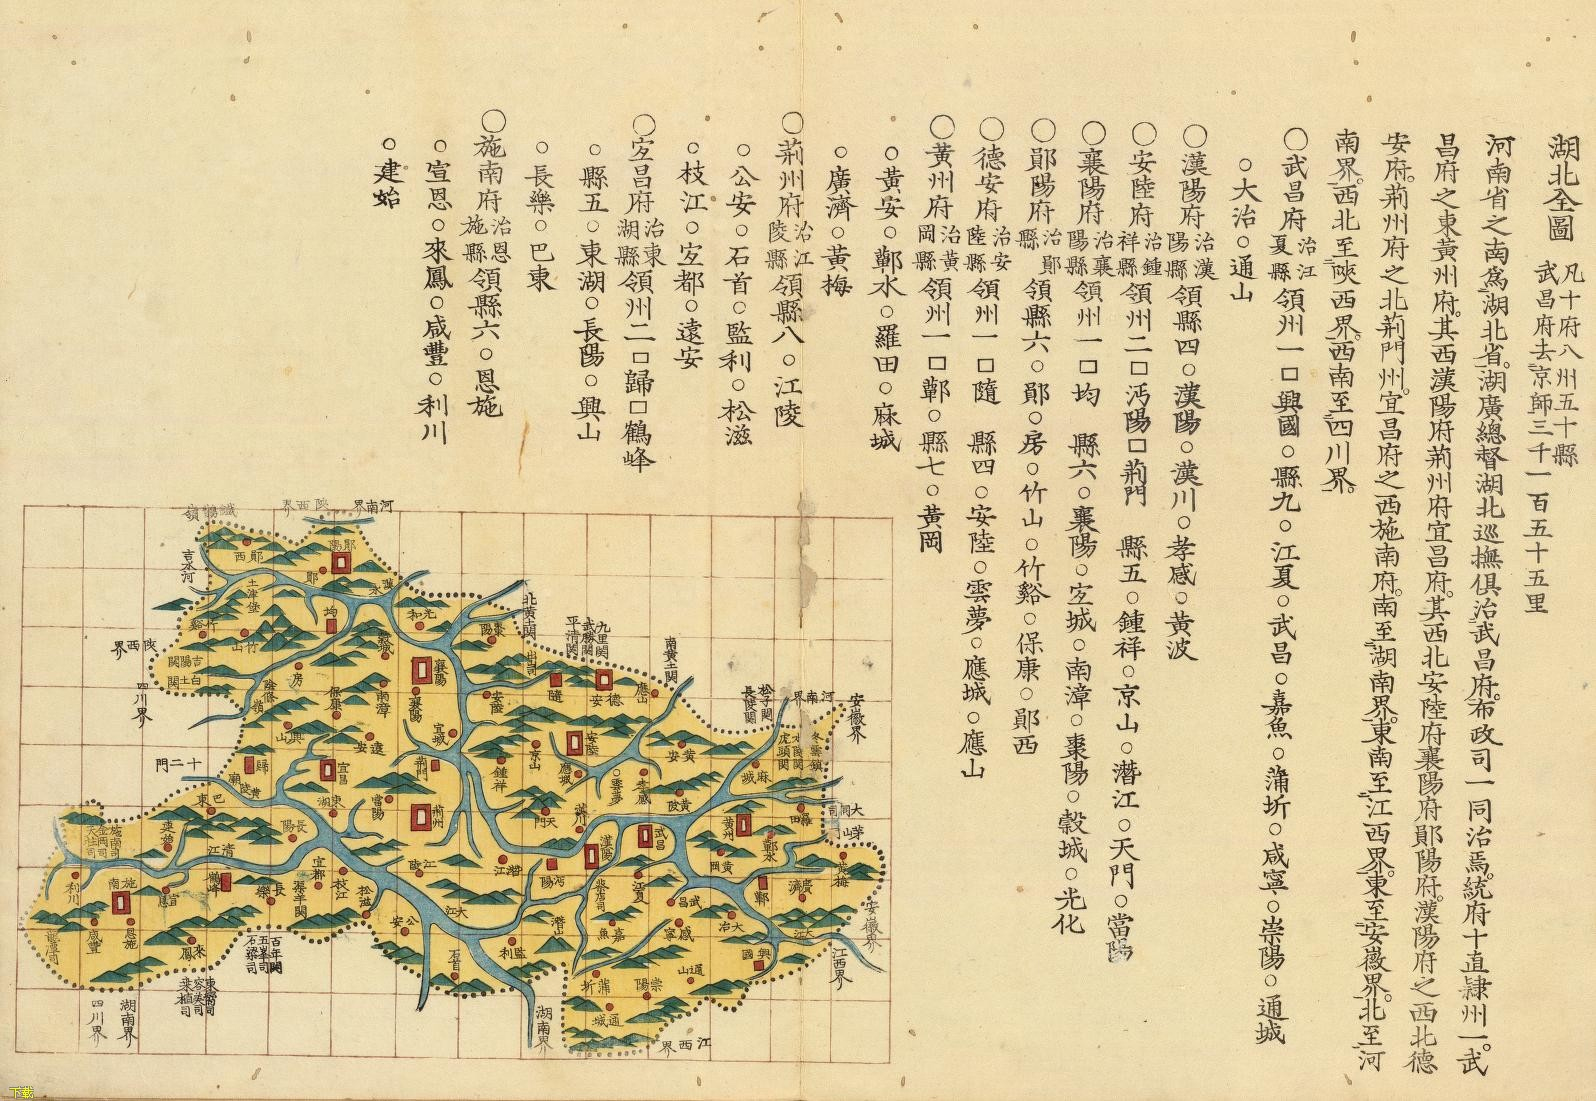 湖北全圖 凡十府八州五十縣
武昌府去京師三千一百五十五里
河南省之南爲湖北省。湖廣總督湖北巡撫俱治武昌府。布政司一同治焉。統府十直隸州一。武
昌府之東黃州府。其西漢陽府荆州府宜昌府。其西北安陸府襄陽府鄖陽府。漢陽府之西北德
安府。荆州府之北荆門州。宜昌府之西施南府。南至湖南界。東南至江西界。東至安徽界。北至河
南界。西北至陜西界。西南至四川界。
○武昌府治江夏縣領州一□興國○縣九○江夏○武昌○嘉魚○蒲圻○咸寧○崇陽○通城
○大冶○通山
○漢陽府治漢陽縣領縣四○漢陽○漢川○孝感○黃波
○安陸府治鍾祥縣領州二□沔陽□荆門 縣五○鍾祥○京山○潛江○天門○當陽
○襄陽府治襄陽縣領州一□均 縣六○襄陽○宜城○南漳○棗陽○穀城○光化
○鄖陽府治鄖縣 領縣六○鄖○房○竹山○竹谿○保康○鄖西
○德安府治安陸縣領州一□隨 縣四○安陸○雲夢○應城○應山
○黃州府治黃岡縣領州一□蘄○縣七○黃岡
○黃安○蘄水○羅田○麻城
○廣濟○黃梅
○荆州府治江陵縣領縣八○江陵
○公安○石首○監利○松滋
○枝江○宜都○遠安
○宜昌府治東湖縣領州二□歸□鶴峰
○縣五○東湖○長陽○興山
○長樂○巴東
○施南府治恩施縣領縣六○恩施
○宣恩○來鳳○咸豐○利川
○建始
河南界
陜西界
吉水河
鄖陽
鄖西
鄖
土津堡
均
光和
穀城
竹谿
竹山
陜西界
四川界
房
保康
南漳
襄陽
襄陽
棗陽
北黃土關
九里關
武勝關
平靖關
出山司
隨
德安
應山
南黃土關
松子關
長嶺關
河南界
安徽界
安陸
宜城
興山
遠安
歸
十二門
黃陵廟
巴東
宜昌
東湖
荆門
當陽
荆州
鍾祥
京山
安陸
應城
雲夢
孝感
黃安
黃陂
麻城
虎頭關
羅田
大同司
茅山
天門
漢川
漢陽
武昌
黃州
黃岡
蘄水
蘄
廣濟
黃梅
安徽界
江西界
大江
興國
大冶
武昌
江夏
咸寧
嘉魚
蒲圻
崇陽
通山
通城
江西界
湖南界
沔陽
潛江
江陵
大江
公安
石首
監利
松滋
枝江
宜都
長陽
清江
鶴峰
長樂
建始
施南
恩施
宣恩
利川
咸豐
來鳳
百年關
五峯司
石梁司
四川界
湖南界
下載